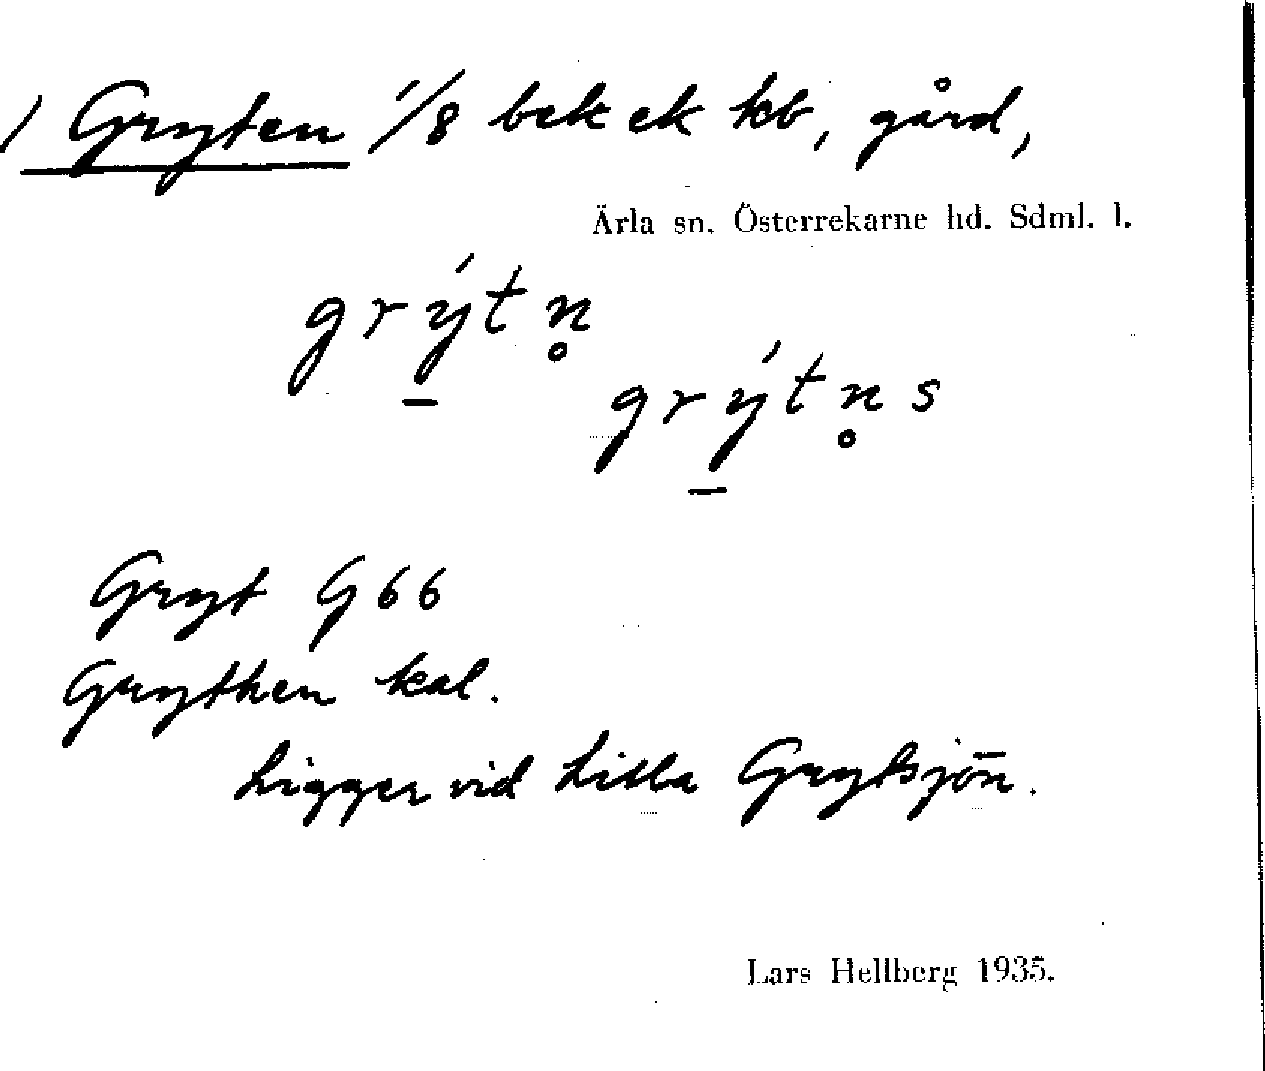 / Gryten 1/8 bek ek kb, gård,
Ärla sn. Österrekarne hd. Sdml. l.
grý̠tn̥
grý̠tn̥s
Gryt G 66
Grythen kal.
Ligger vid Lilla Grytsjön.
Lars Hellberg 1935.